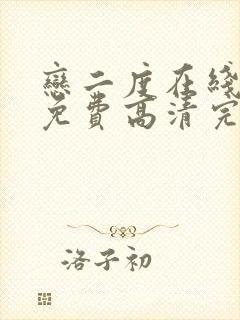 戀二度在綫
免費高清完
洛子初